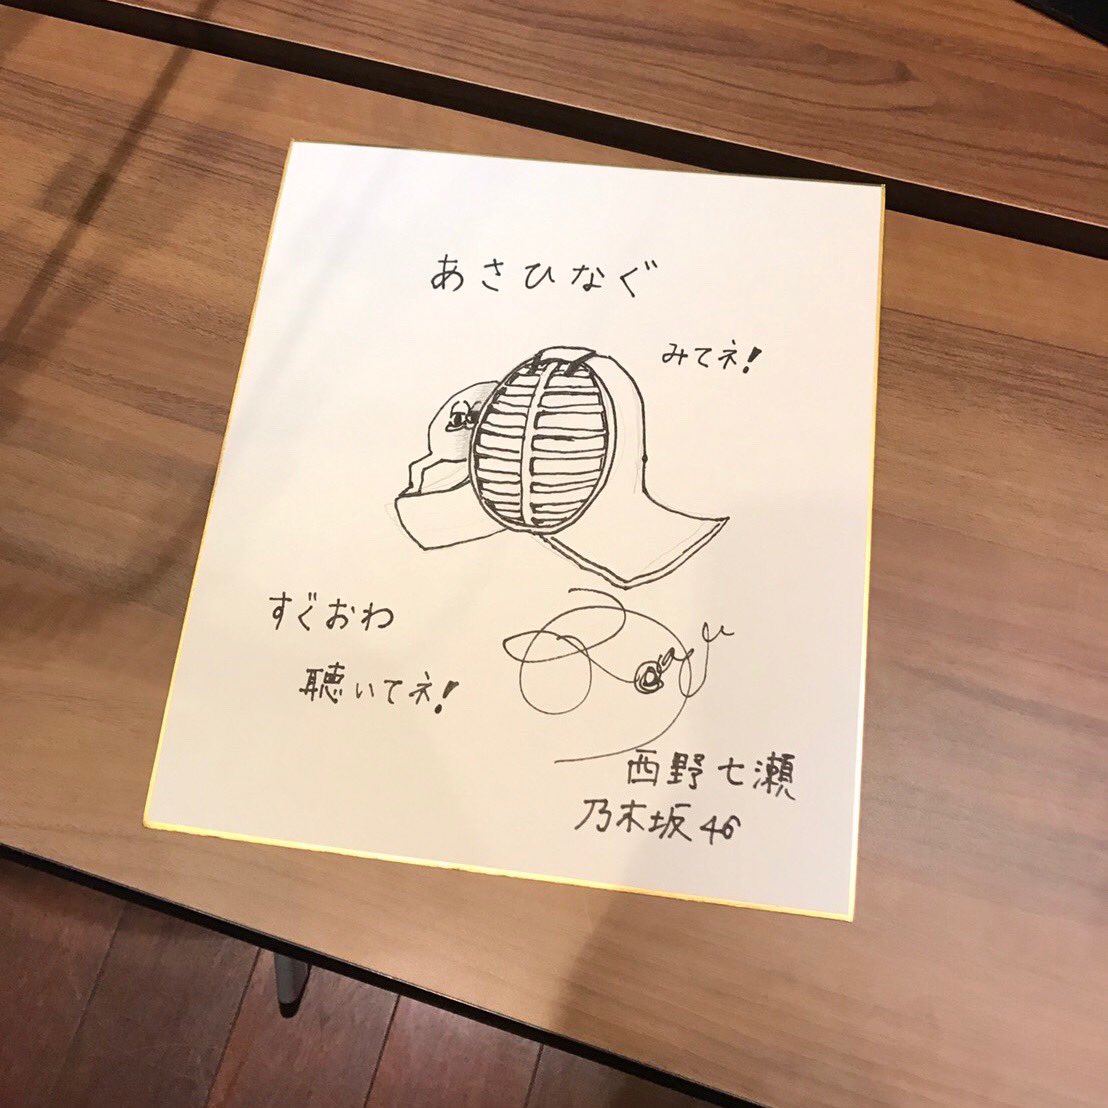 あさひなぐ
みてネ!
すぐおわ
聴いてネ!
西野七瀬
乃木坂46